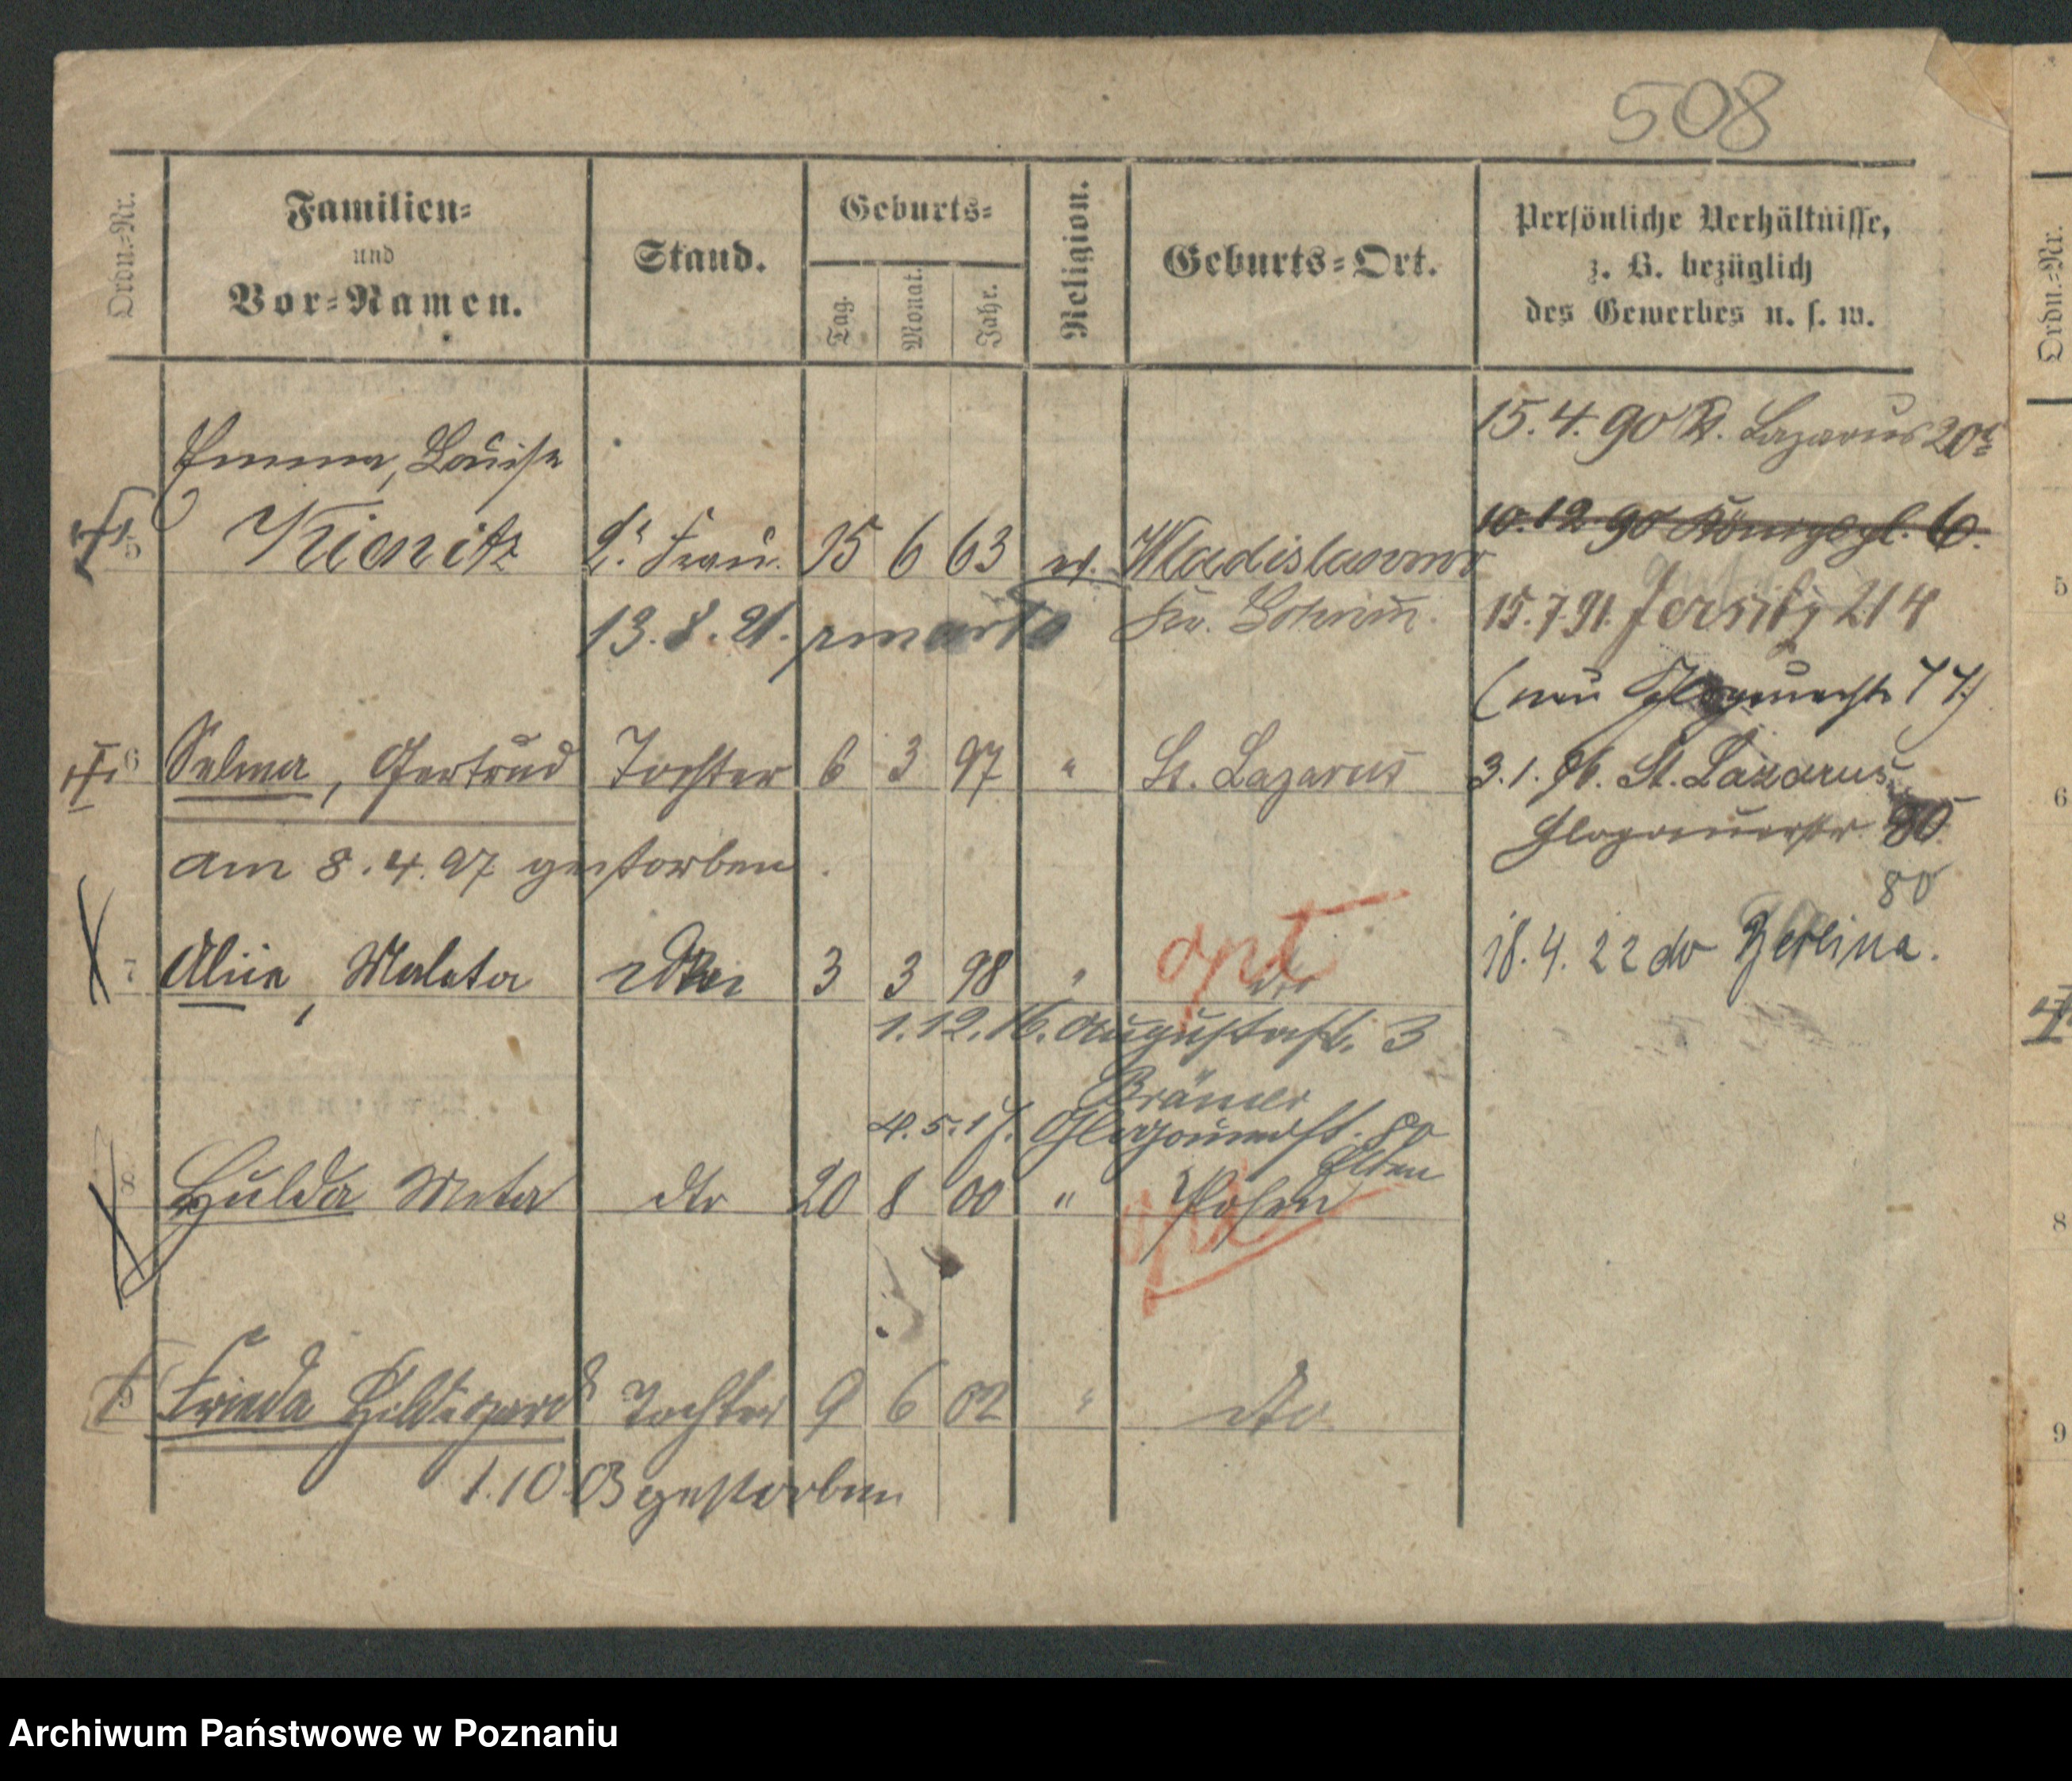 508
Ordn.=Nr.
Familien=
und
Vor=Namen.
Stand.
Geburts=
Tag.
Monat.
Jahr.
Religion.
Geburts=Ort.
Persönliche Verhältnisse,
z. B. bezüglich
des Gewerbes u. s. w.
Ordn.=Nr.
15.4.90 St. Lazarus 20
Emma, Louise
10.12 90 6.
5 Kienitz Frau 15 6 63 ev. Wladislawowo
5
13.8.21. zmarła
15.7.91. Jersitz 214
(neu 77)
6 Selma, Gertrud Tochter 6 3 97 " St. Lazarus
3.1.96. St. Lazarus
6
Glogauerstr. 80
am 8.4.97 gestorben.
80
opt
18.4.22 do Berlina.
7 Malata 3 3 98 "
1.12.16. Augustast. 3
4.5.17. Glogauerst. 80
Eltern
8 Hulda Meta dto 20 8 00 " Posen
8
9 Frieda Hildegard Tochter 9 6 02 " dto
9
1.10.03 gestorben
Archiwum Państwowe w Poznaniu